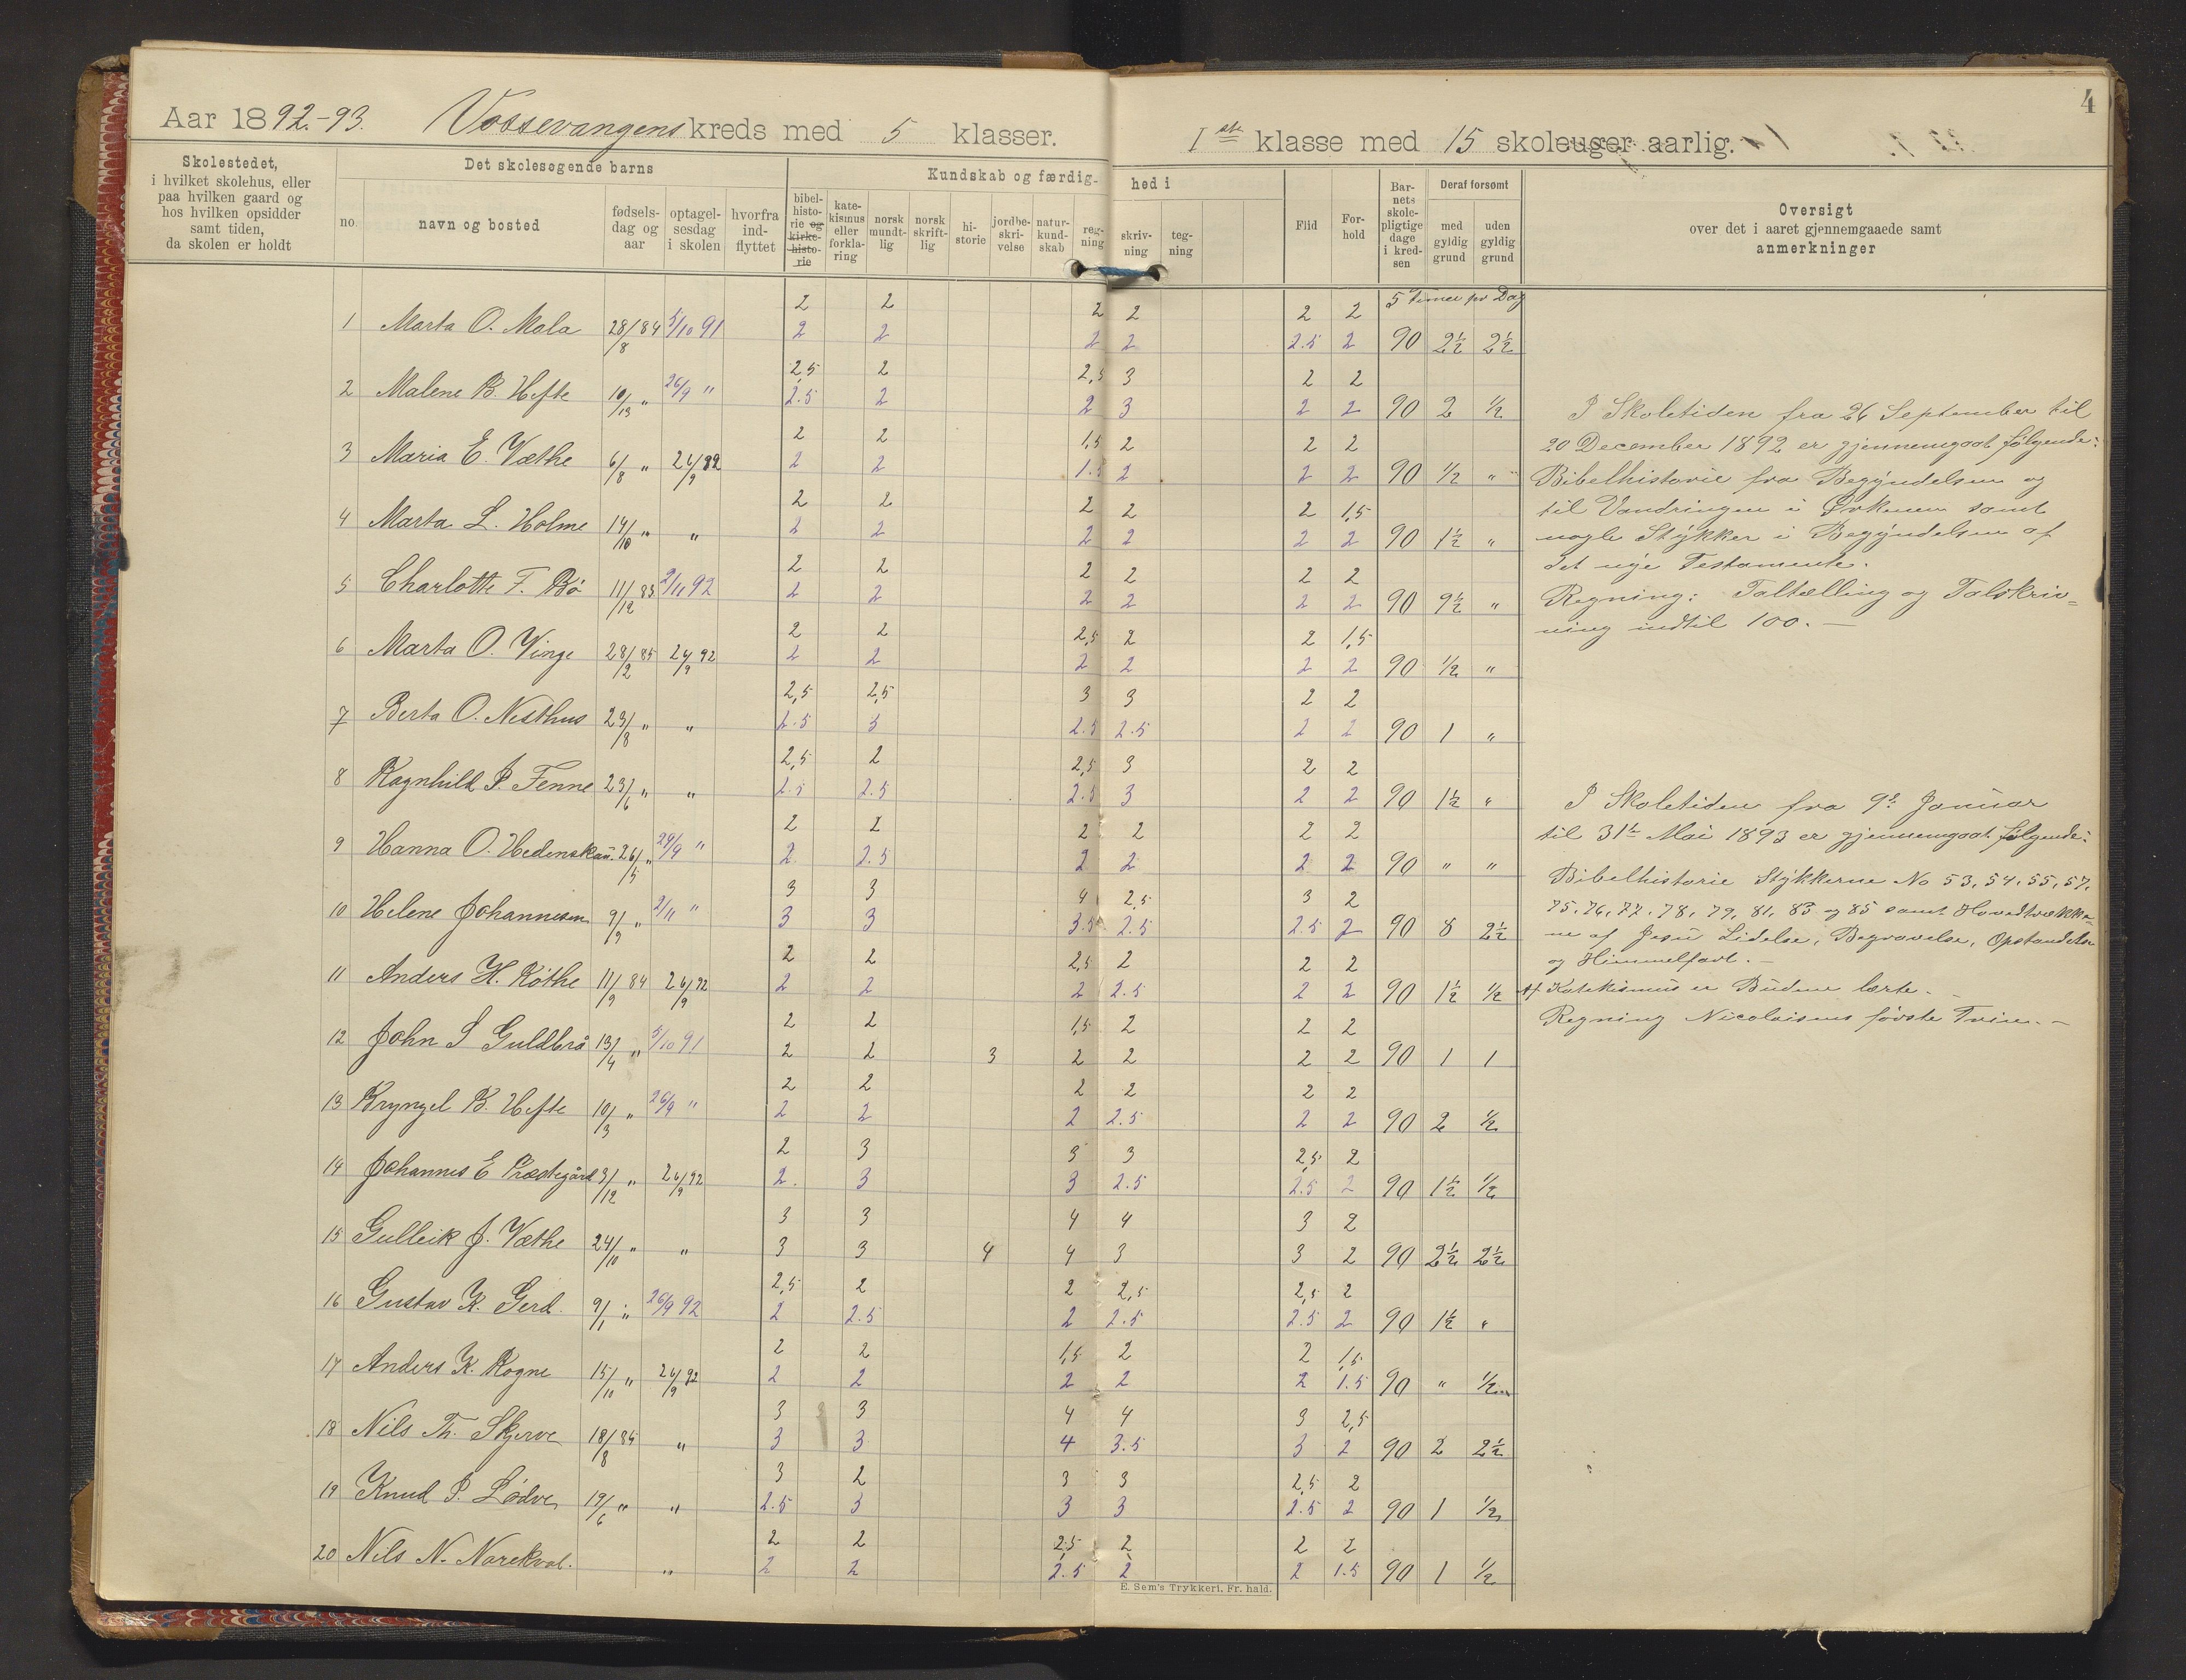 Aar 1892.-93. Vossevangens kreds med 5 klasser. I ste klasse med 15 skoleuger aarlig. 4
Skolestedet, i hvilket skolehus, eller paa hvilken gaard og hos hvilken opsidder samt tiden, da skolen er holdt
Det skolesøgende barns
no. navn og bosted fødselsdag og aar optagelsesdag i skolen hvorfra indflyttet
Kundskab og færdighed i
bibelhistorie og kirkehistorie katekismus eller forklaring norsk mundtlig norsk skriftlig historie jordbeskrivelse naturkundskab regning skrivning tegning
Flid Forhold Barnets skolepligtige dage i kredsen
Deraf forsømt
med gyldig grund uden gyldig grund
Oversigt
over det i aaret gjennemgaaede samt
anmerkninger
2 2 2 2 2 2 5 Timer pr Dag
1 Marta O. Mala 28/8 84 5/10 91 2 2 2 2 2.5 2 90 2½ 2½
2,5 2 2,5 3 2 2
2 Malene B. Hefte 10/13 " 26/9 " 2.5 2 2 3 2 2 90 2 ½
2 2 1,5 2 2 2
3 Maria E. Væthe 6/8 " 26/9 92 2 2 1.5 2 2 2 90 ½ "
2 2 2 2 2 1,5
4 Marta L. Holme 14/10 " " 2 2 2 2 2 2 90 1½ "
2 2 2 2 2 2
5 Charlotte F. Bø 11/12 83 2/11 92 2 2 2 2 2 2 90 9½ "
2 2 2,5 2 2 1,5
6 Marta O. Vinge 28/2 85 26/9 92 2 2 2 2 2 2 90 ½ "
2,5 2,5 3 3 2 2
7 Berta O. Nesthus 23/8 " " 2.5 3 2.5 2.5 2 2 90 1 "
2,5 2 2,5 3 2 2
8 Ragnhild P. Fenne 23/6 " " 2.5 2.5 2.5 3 2 2 90 1½ "
2 2 2 2 2 2
9 Hanna O. Hedenskau. 26/5 " 29/9 " 2 2.5 2 2 2 2 90 " "
3 3 4 2,5 3 2
10 Helene Johannesen 9/9 " 2/11 " 3 3 3.5 2.5 2.5 2 90 8 2½
2 2 2,5 2 2 2
11 Anders H. Røthe 11/9 84 26/9 92 2 2 2 2.5 2 2 90 1½ ½
2 2 1,5 2 2 2
12 John S Guldbrå 13/4 " 5/10 91 2 2 3 2 2 2 2 90 1 1
2 2 2 2 2 2
13 Bryngel B. Hefte 10/3 " 26/9 " 2 2 2 2.5 2 2 90 2 ½
2 3 3 3 2,5 2
14 Johannes E Præstegård 3/12 " 26/9 92 2. 3 3 2.5 2.5 2 90 1½ ½
3 3 4 4 3 2
15 Gulleik J. Væthe 24/10 " " 3 3 4 4 3 3 2 90 2½ 2½
2,5 2 2 2,5 2,5 2
16 Gustav K. Gjerd. 9/1 " 26/9 92 2 2.5 2 2.5 2.5 2 90 1½ "
2 2 1,5 2 2 1,5
17 Anders K. Rogne 15/10 " 26/9 92 2 2 2 2 2 1.5 90 " ½
3 3 4 4 3 2,5
18 Nils Th. Skjerve 18/8 84 " 3 3 4 3.5 3 2 90 2 2½
3 2 3 3 2,5 2
19 Knud P. Lødve 19/6 " " 2.5 3 3 3 2.5 2 90 1 ½
2 2 2,5 2 2 2
20 Nils N. Norekval. " 2 2 2.5 2 2 1.5 90 1 ½
I Skoletiden fra 26 September til
20 December 1892 er gjennemgaat følgende:
Bibelhistorie fra Begyndelsen og
til Vandringen i Ørkenen samt
nogle Stykker i Begyndelsen af
det nye Testamente.
Regning: Taltælling og Talskriv=
ning indtil 100. —
I Skoletiden fra 9de Januar
til 31te Mai 1893 er gjennemgaat følgende:
Bibelhistorie Stykkerne No 53, 54, 55, 57,
75, 76, 77, 78, 79, 81, 83 og 85 samt Hovedtrække=
ne af Jesu Lidelse, Begravelse, Opstandelse
og Himmelfart. —
Af Katekismus er Budene lærte. —
Regning Nicolaisens første Trin. —
E. Sem's Trykkeri, Fr. hald.